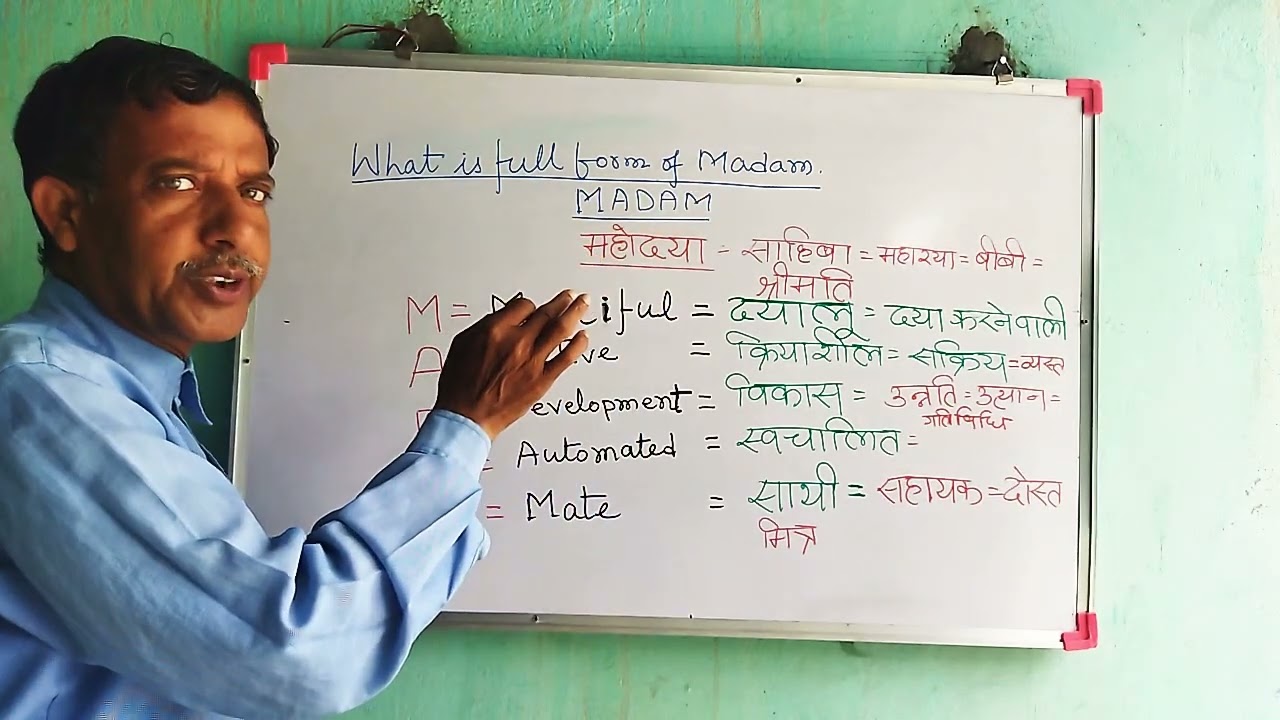 What is full form of Madam.
MADAM
महोदया = साहिबा = महाशया = बीबी =
श्रीमति
M = M iful = दयालू = दया करने वाली
A ive = क्रियाशील = सक्रिय = व्यस्त
evelopment = विकास = उन्नति = उत्थान =
गतिविधि
= Automated = स्वचालित =
= Mate = साथी = सहायक = दोस्त
मित्र